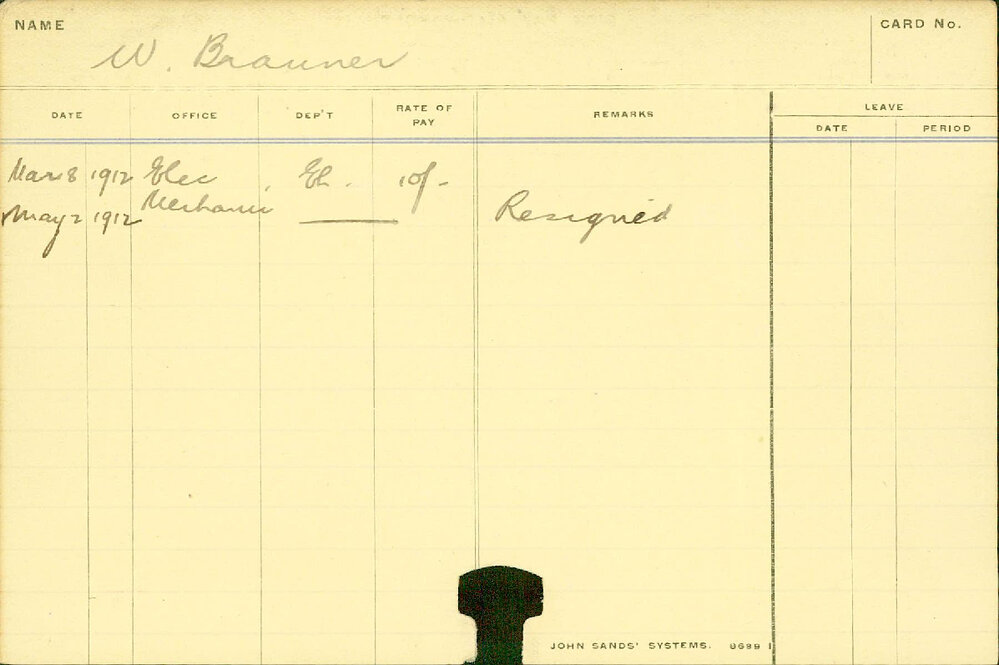 NAME
W. Brauner
CARD No.
DATE OFFICE DEP'T RATE OF PAY REMARKS LEAVE
DATE PERIOD
Mar 8 1912 Elec El. 10/-
Mechanic
May 2 1912 Resigned
JOHN SANDS' SYSTEMS. 8699